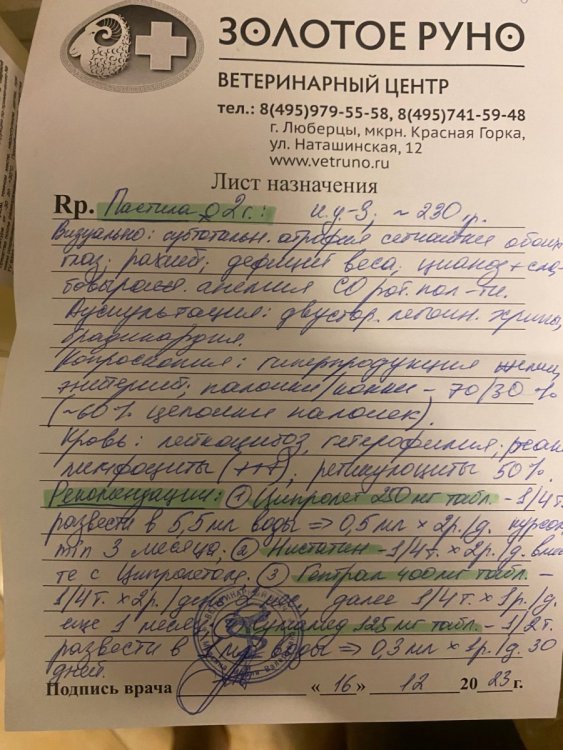 ЗОЛОТОЕ РУНО
ВЕТЕРИНАРНЫЙ ЦЕНТР
тел.: 8(495)979-55-58, 8(495)741-59-48
г. Люберцы, мкрн. Красная Горка,
ул. Наташинская, 12
www.vetruno.ru
Лист назначения
Rp. Пастила 2 г.: и.у-3, ~ 230 г.
Визуально: субтотальн. атрофия сетчатки обоих
глаз; рахит; дефицит веса, цианоз + сла-
бовыраж. анемия СО рот. пол-ти.
Аускультация: двустор. легочн. хрипы,
брадикардия.
Копроскопия: гиперпродукция
палочки/кокки - 70/30 %
(~60% цепочки палочек).
Кровь: лейкоцитоз, гетерофилия,
лимфоциты (+++), ретикулоциты 50%.
Рекомендации: ① Ципролет 250 мг табл. - 1/4 т.
развести в 5,5 мл воды => 0,5 мл x 2р./д. курсом
min 3 месяца, ② Нистатин - 1/4 т. x 2р./д. вмес-
те с Ципролетом. ③ Гептрал 400 мг табл. -
1/4 т. x 2р./день далее 1/4 т. x 1р./д.
еще 1 месяц. 125 мг табл. - 1/2 т.
развести в воды => 0,3 мл x 1р./д. 30
дней.
Подпись врача « 16 » 12 20 23 г.